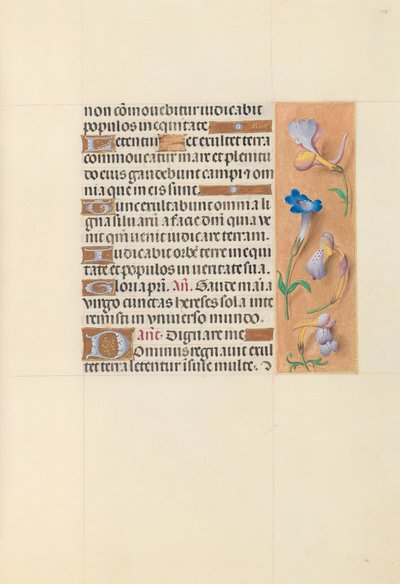 non cōmouebitur iudicabit
populos in equitate
Letentur et exultet terra
commoueatur mare et plenitu
do eius gaudebunt campi et om
nia que in eis sunt.
Tunc exultabunt omnia li
gna siluarū a facie dnī quia ve
nit qm̄ uenit iudicare terram.
Iudicabit orbē terre in equi
tate et populos in ueritate sua.
Gloria pr̄i. An̄. Gaude maria
virgo cunctas hereses sola inte
remisti in vniuerso mundo.
Dignare me
Dominus regnauit exul
tet terra letentur isule multe.